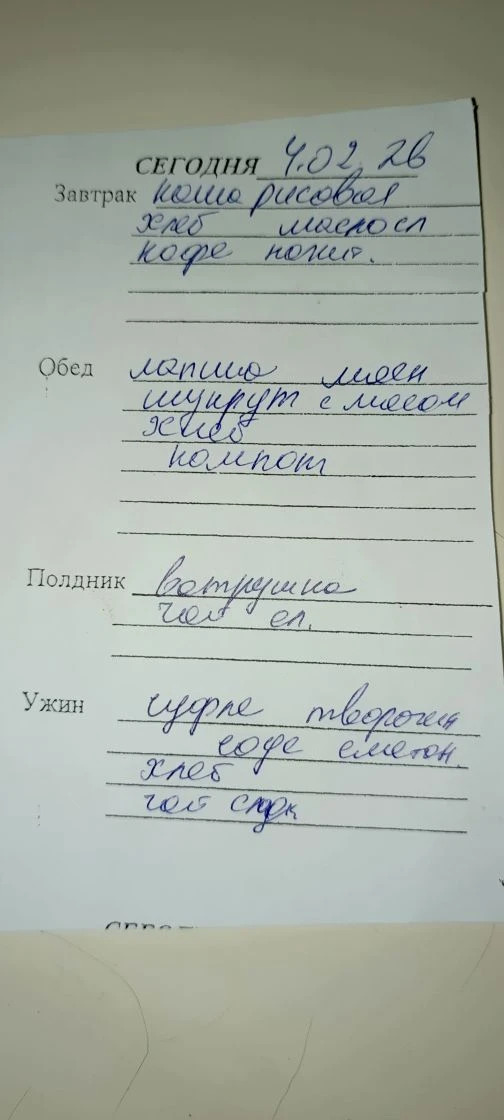 СЕГОДНЯ 4.02.26
Завтрак каша рисовая
хлеб масло сл
кофе напит.
Обед лапша
шукрут с мясом
хлеб
компот
Полдник ватрушка
чай сл.
Ужин суфле творожн
соус сметан.
хлеб
чай сладк